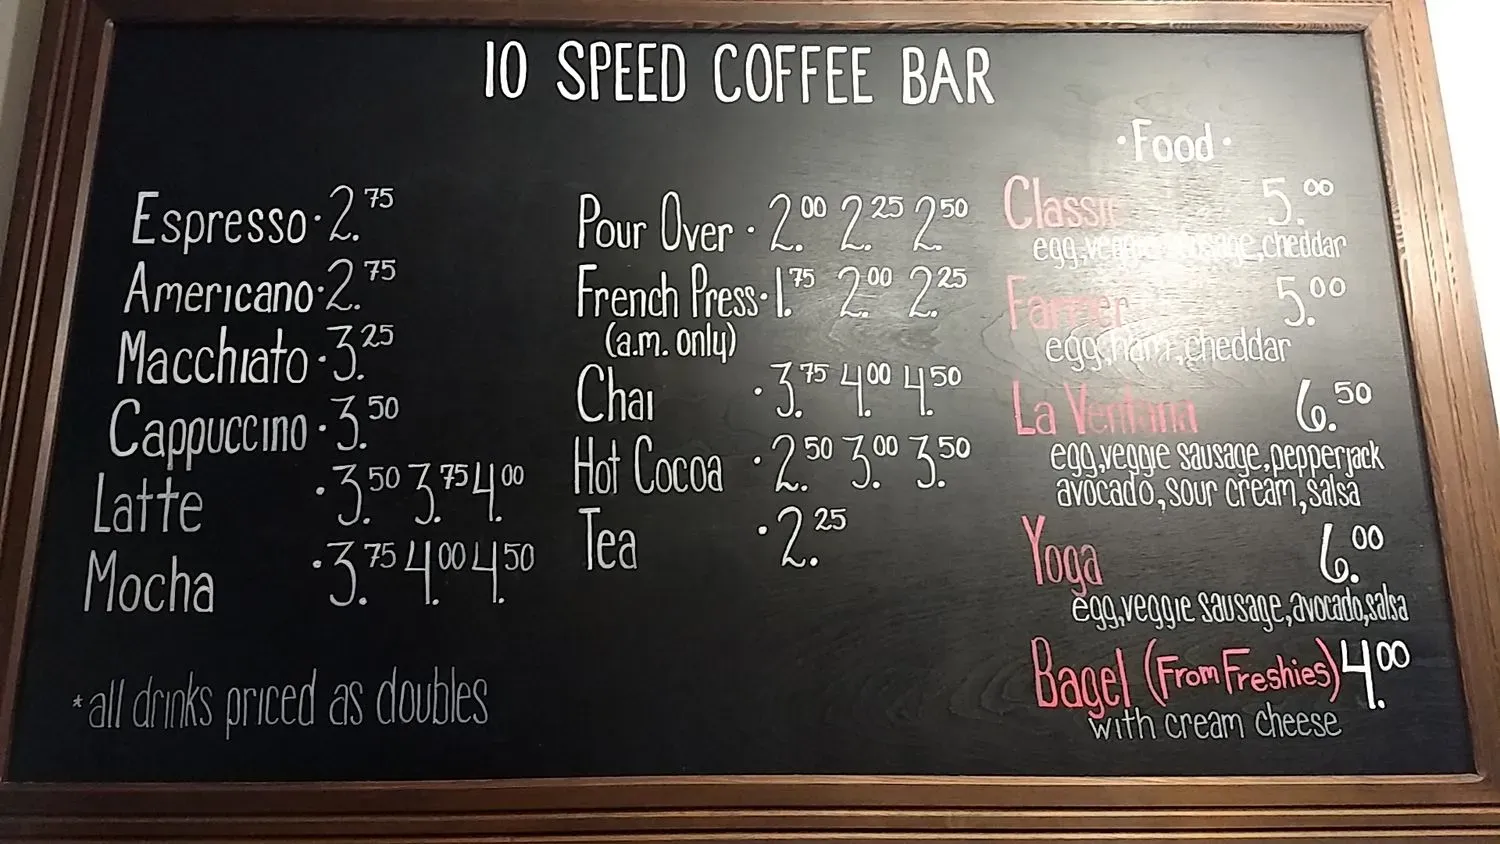 10 SPEED COFFEE BAR
Espresso · 2.75
Americano · 2.75
Macchiato · 3.25
Cappuccino · 3.50
Latte · 3.50 3.75 4.00
Mocha · 3.75 4.00 4.50
*all drinks priced as doubles
Pour Over · 2.00 2.25 2.50
French Press · 1.75 2.00 2.25
(a.m. only)
Chai · 3.75 4.00 4.50
Hot Cocoa · 2.50 3.00 3.50
Tea · 2.25
· Food ·
Classic 5.00
egg, veggie sausage, cheddar
Farmer 5.00
egg, ham, cheddar
La Ventana 6.50
egg, veggie sausage, pepperjack
avocado, sour cream, salsa
Yoga 6.00
egg, veggie sausage, avocado, salsa
Bagel (From Freshies) 4.00
with cream cheese